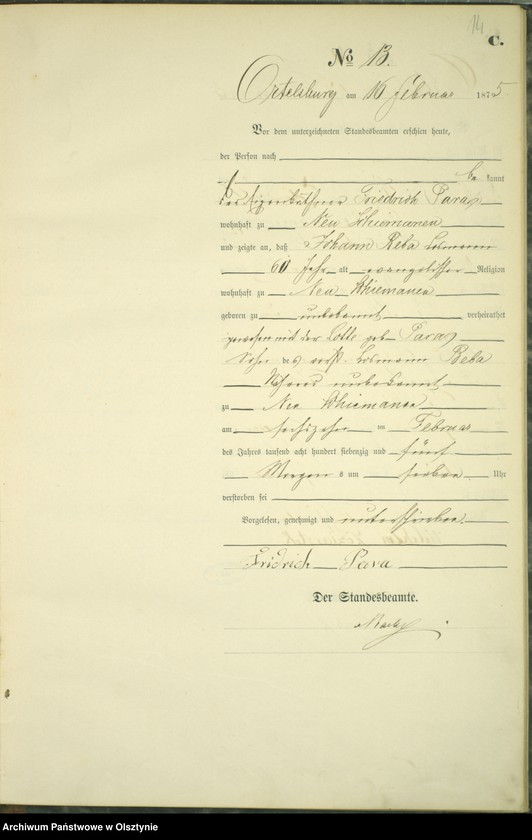 14
C.
No 13.
Ortelsburg am 16 Februar 1875
Vor dem unterzeichneten Standesbeamten erschien heute,
der Person nach
be kannt
der Eigenkäthner Friedrich Para
wohnhaft zu Neu Schiemanen
und zeigte an, daß Johann Reba Losmann
60 Jahr alt evangelischer Religion
wohnhaft zu Neu Schiemanen
geboren zu unbekannt verheirathet
gewesen mit der Lotte geb. Para
Sohn des verst. Losmann Reba
Näheres unbekannt
zu Neu Schiemanen
am sechszehn ten Februar
des Jahres tausend acht hundert siebenzig und fünf
Morgens um sieben Uhr
verstorben sei
Vorgelesen, genehmigt und unterschrieben
Fridrich Para
Der Standesbeamte.
Archiwum Państwowe w Olsztynie